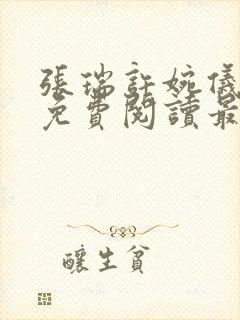 張瑞許婉儀
免費閱讀最
釀生貧